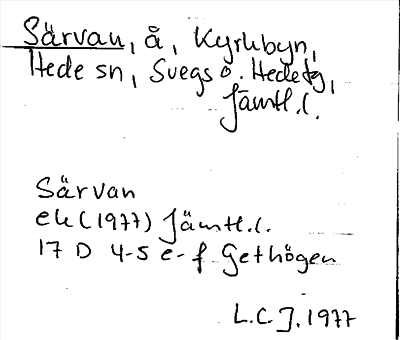 Särvan, å, Kyrkbyn,
Hede sn, Svegs o. Hede tg,
Jämtl.l.
Särvan
ek (1977) Jämtl.l.
17 D 4-5 e-f Gethögen
L.C.J. 1977